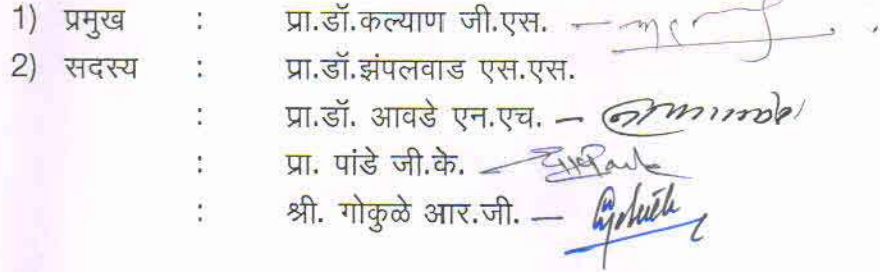 1) प्रमुख : प्रा.डॉ.कल्याण जी.एस. –
2) सदस्य : प्रा.डॉ.झंपलवाड एस.एस.
: प्रा.डॉ. आवडे एन.एच. –
: प्रा. पांडे जी.के.
: श्री. गोकुळे आर.जी. –